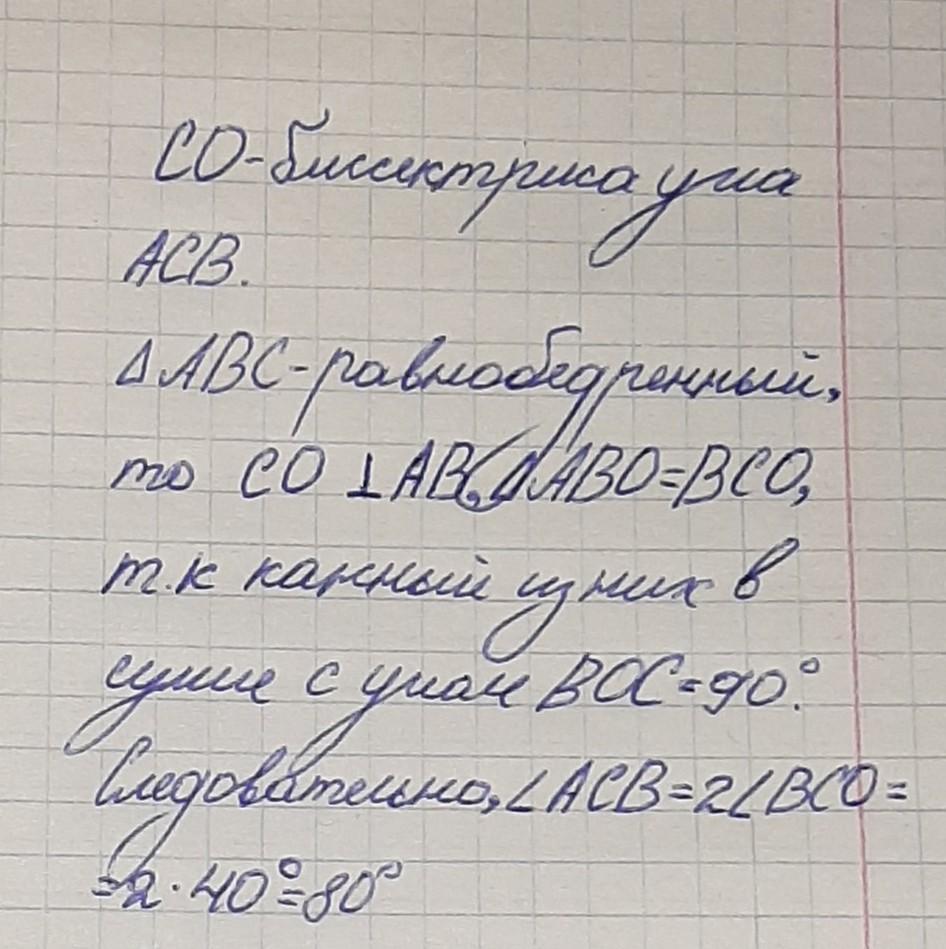 CO-биссектриса угла
ACB.
ΔABC-равнобедренный,
то CO ⊥ AB, ΔABO=BCO,
т.к каждый из них в
сумме с углом BOC=90°.
Следовательно, ∠ACB=2∠BCO=
=2·40°=80°